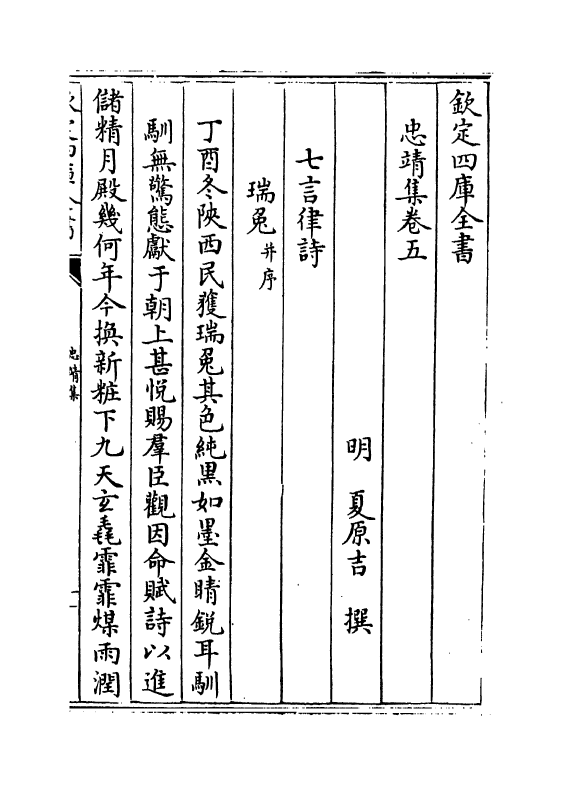 欽定四庫全書
忠靖集卷五
明 夏原吉 撰
七言律詩
瑞兔并序
丁酉冬陜西民獲瑞兔其色純黒如墨金睛銳耳馴
馴無驚態獻于朝上甚悦賜羣臣觀因命賦詩以進
儲精月殿幾何年今換新粧下九天玄毳霏霏煤雨潤
忠靖集